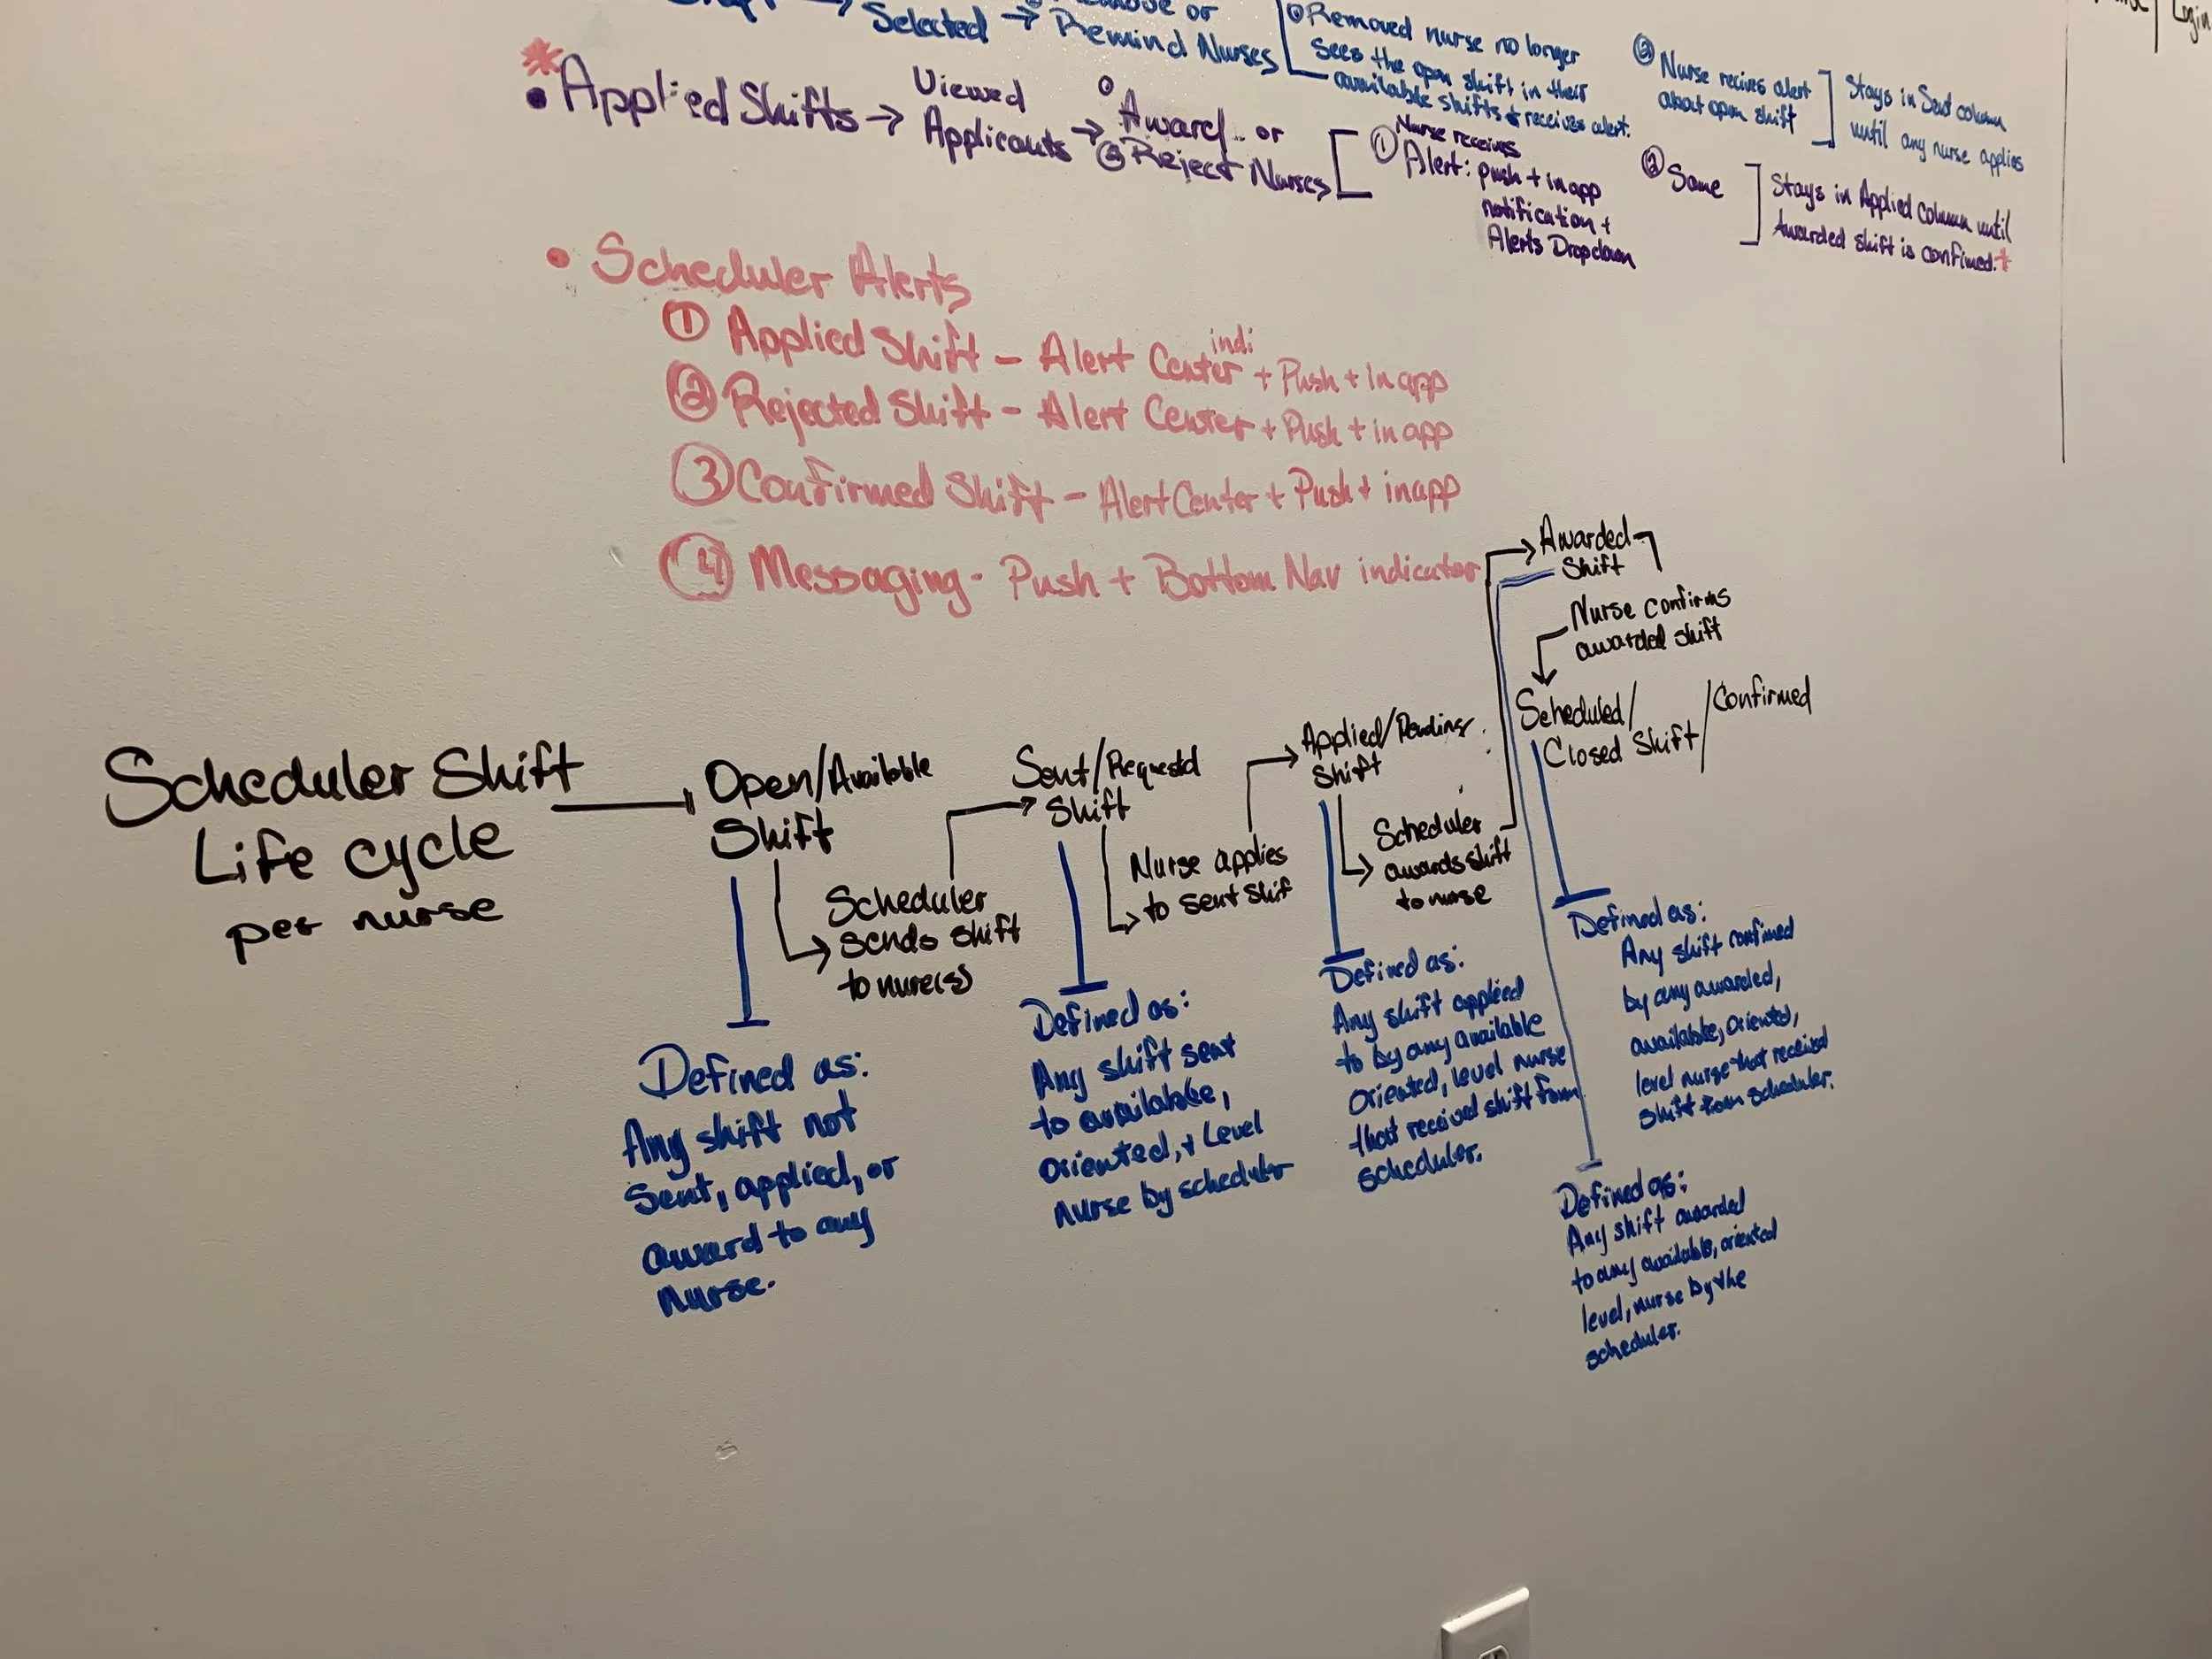 Selected → Remind Nurses
or
① Removed nurse no longer
sees the open shift in their
available shifts + receives alert.
② Nurse recives alert
about open shift
Stays in Sent column
until any nurse applies
Login
* • Applied Shifts → Viewed
Applicants → Award or
② Reject Nurses
① Nurse receives
Alert: push + in app
notification +
Alerts Dropdown
② Same
Stays in Applied column until
Awarded shift is confimed.*
• Scheduler Alerts
① Applied Shift - Alert Center indi + Push + In app
② Rejected Shift - Alert Center + Push + in app
③ Confirmed Shift - Alert Center + Push + in app
④ Messaging - Push + Bottom Nav indicator
Scheduler Shift
Life cycle
per nurse
Open/Available
Shift
Scheduler
sends shift
to nure(s)
Sent/Requestd
Shift
Nurse applies
to sent shif
Applied/Pending
Shift
Scheduler
awards shift
to nurse
Awarded
Shift
Nurse confirms
awarded shift
Scheduled/
Closed Shift/Confirmed
Defined as:
Any shift not
Sent, applied, or
award to any
nurse.
Defined as:
Any shift sent
to available,
oriented, + Level
nurse by scheduler
Defined as:
Any shift applied
to by any available
oriented, level nurse
that received shift from
scheduler.
Defined as:
Any shift confimed
by any awarded,
available, oriented,
level nurse that received
shift from scheduler.
Defined as:
Any shift awarded
to any available, oriented
level, nurse by the
scheduler.